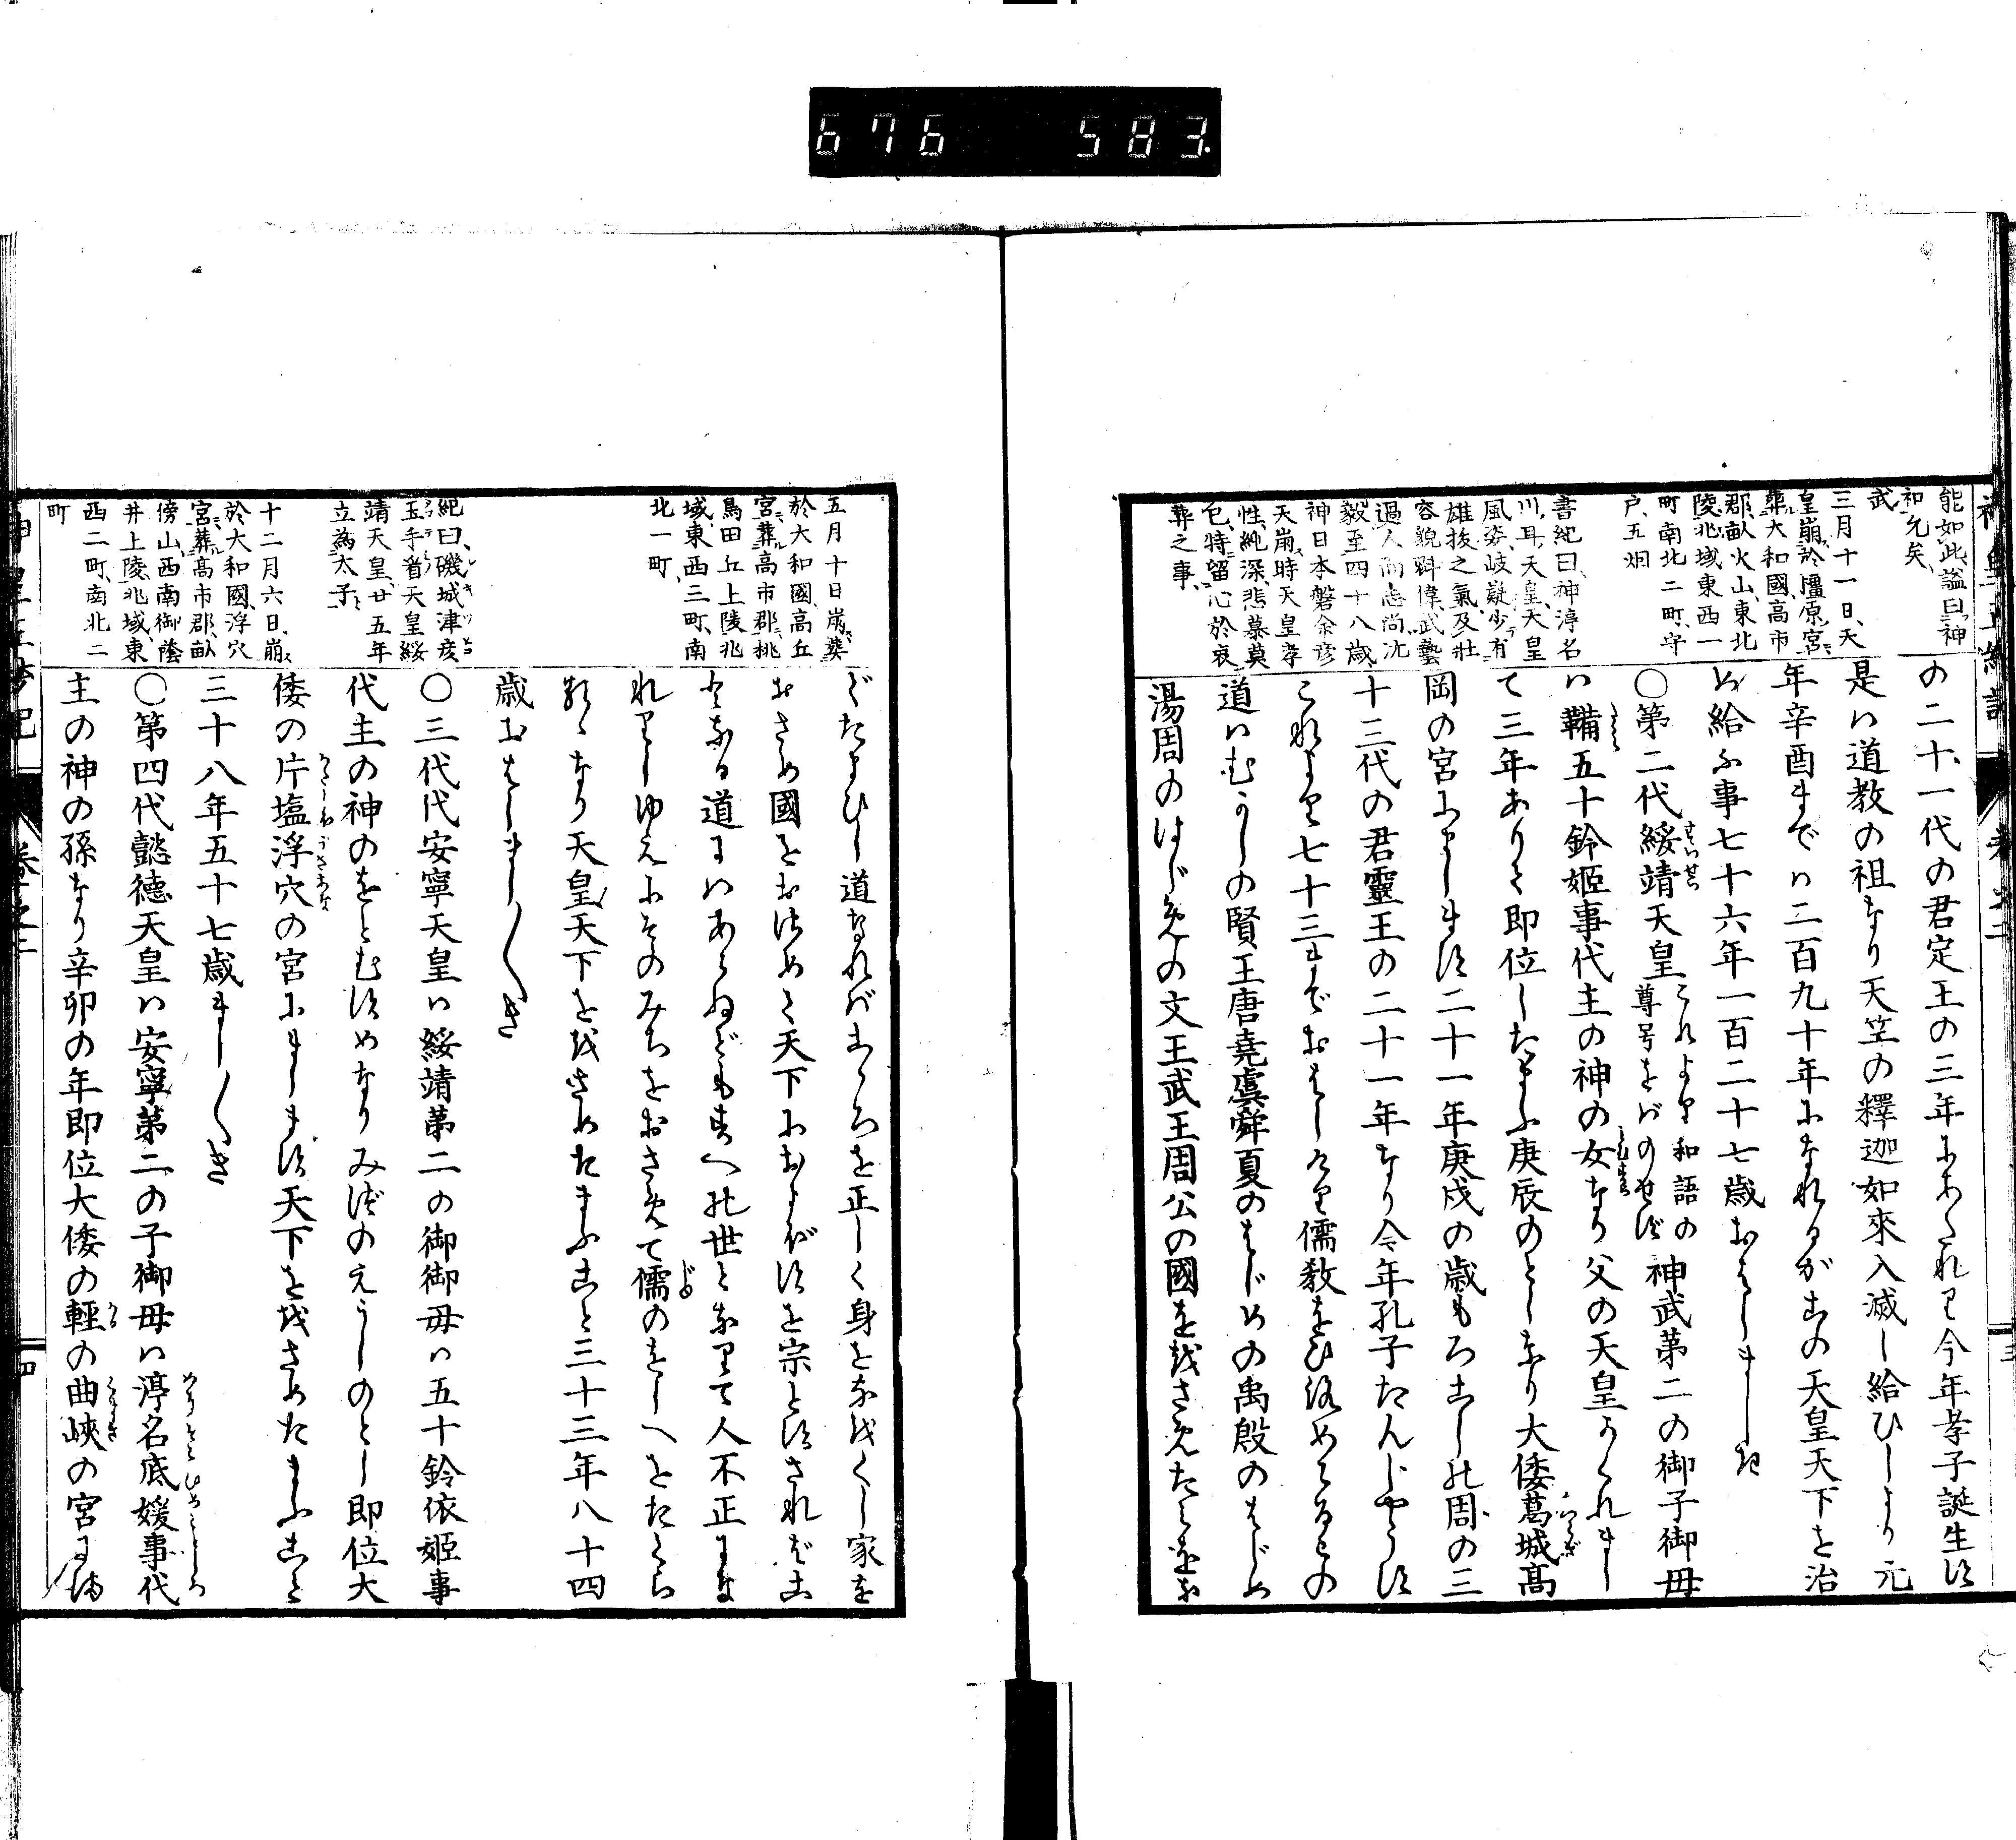 676 583
能如此謚曰神
和允矣
武
三月十一日天
皇崩於橿原宮
葬大和國高市
郡畝火山東北
陵兆域東西一
町南北二町守
戸五烟
書紀曰神渟名
川耳天皇天皇
風姿岐嶷少有
雄抜之氣及壮
容貌魁偉武藝
過人而志尚沈
毅至四十八歳
神日本磐余彦
天皇崩時天皇孝
性純深悲慕莫
已特留心於喪
葬之事
の二十一代の君定王の三年にあたれり今年孝子誕生す
是ハ道教の祖なり天竺の釋迦如來入滅し給ひしより元
年辛酉までハ二百九十年になれるがこの天皇天下を治
め給ふ事七十六年一百二十七歳おはしましき
〇第二代綏靖天皇これより和語の尊号をバのせず神武第二の御子御母
ハ鞴五十鈴姫事代主の神の女なり父の天皇かくれまし
て三年ありて即位したまふ庚辰のとしなり大倭葛城髙
岡の宮にまします二十一年庚戌の歳もろこしの周の三
十三代の君靈王の二十一年なり今年孔子たんじやうす
これより七十三までおはしけり儒教をひろめらるこの
道ハむかしの賢王唐堯虞舜夏のはじめの禹殷のはじめ
湯周のはじめの文王武王周公の國ををさめたミをな
五月十日崩葬
於大和國高丘
宮葬高市郡桃
鳥田丘上陵兆
域東西三町南
北一町
紀曰磯城津彦
玉手看天皇綏
靖天皇廿五年
立為太子
十二月六日崩
於大和國浮穴
宮葬髙市郡畝
傍山西南御蔭
井上陵兆域東
西二町南北二
町
でたまひし道なれバこゝろを正しく身をなをくし家を
おさめ國をおさめて天下におよぼすを宗とすされバこ
となる道にハあらねども末の世となりて人不正にな
れりしゆえにそのみちをおさめて儒のをしへをたてら
るゝなり天皇天下ををさめたまふこと三十三年八十四
歳おはしまし〱き
〇三代代安寧天皇ハ綏靖第二の御御毋ハ五十鈴依姫事
代主の神のをとむすめなりみづのえうしのとし即位大
倭の片塩浮穴の宮にまします天下ををさめたまふこと
三十八年五十七歳まし〱き
〇第四代懿德天皇ハ安寧第二の子御毋ハ渟名底媛事代
主の神の孫なり辛卯の年即位大倭の輕の曲峽の宮にま